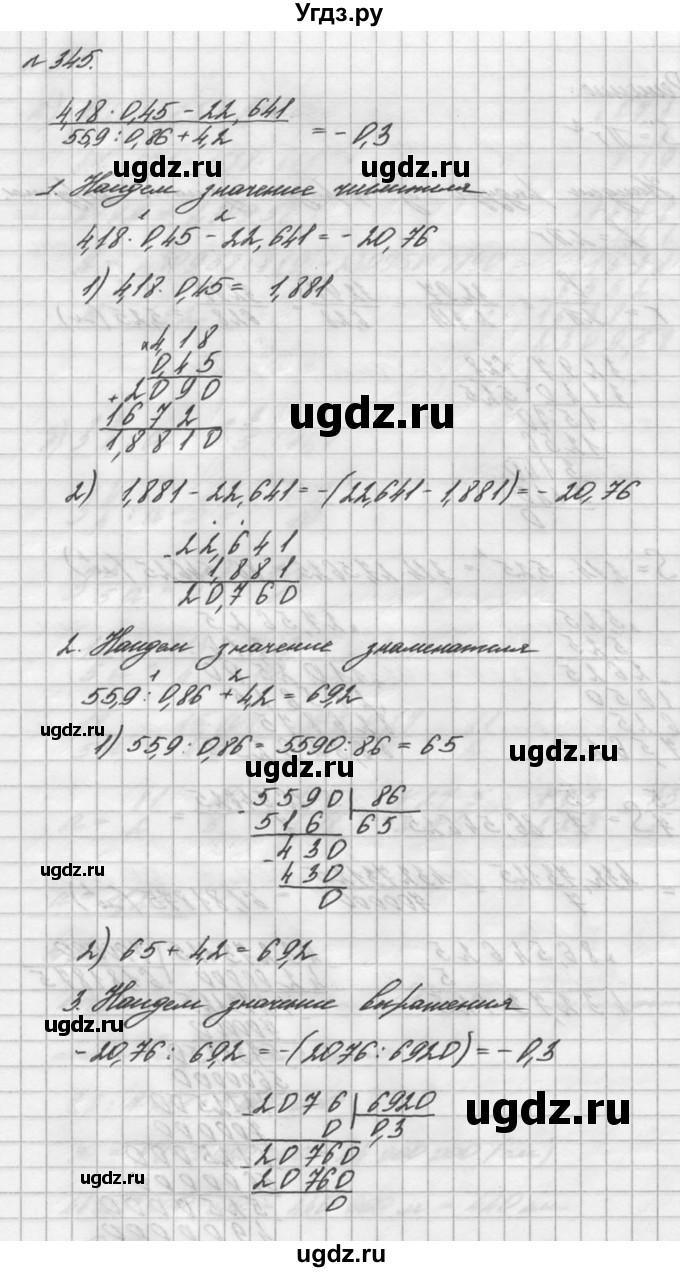 Угдз.ру
№ 345.
4,18 · 0,45 − 22,641
55,9 : 0,86 + 4,2
= − 0,3
ugdz.ru
ugdz.ru
1. Найдем значение числителя
1 2
4,18 · 0,45 − 22,641 = − 20,76
1) 4,18 · 0,45 = 1,881
× 4,18
0,45
+ 2090
1672
1,8810
ugdz.ru
2) 1,881 − 22,641 = −(22,641 − 1,881) = − 20,76
− 22,641
1,881
20,760
2. Найдем значение знаменателя
1 2
55,9 : 0,86 + 4,2 = 69,2
ugdz.ru
1) 55,9 : 0,86 = 5590 : 86 = 65
ugdz.ru
ugdz.ru
− 5590 | 86
516 65
− 430
430
0
ugdz.ru
2) 65 + 4,2 = 69,2
3. Найдем значение выражения
ugdz.ru
− 20,76 : 69,2 = −(2076 : 6920) = − 0,3
− 2076 | 6920
0 0,3
− 20760
20760
0
ugdz.ru
ugdz.ru
ugdz.ru